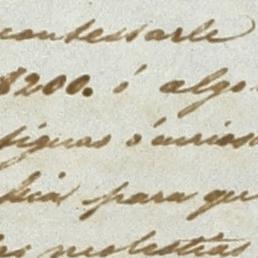 contestarle
$200. ó algo
signas ó curios
para qu
molestias